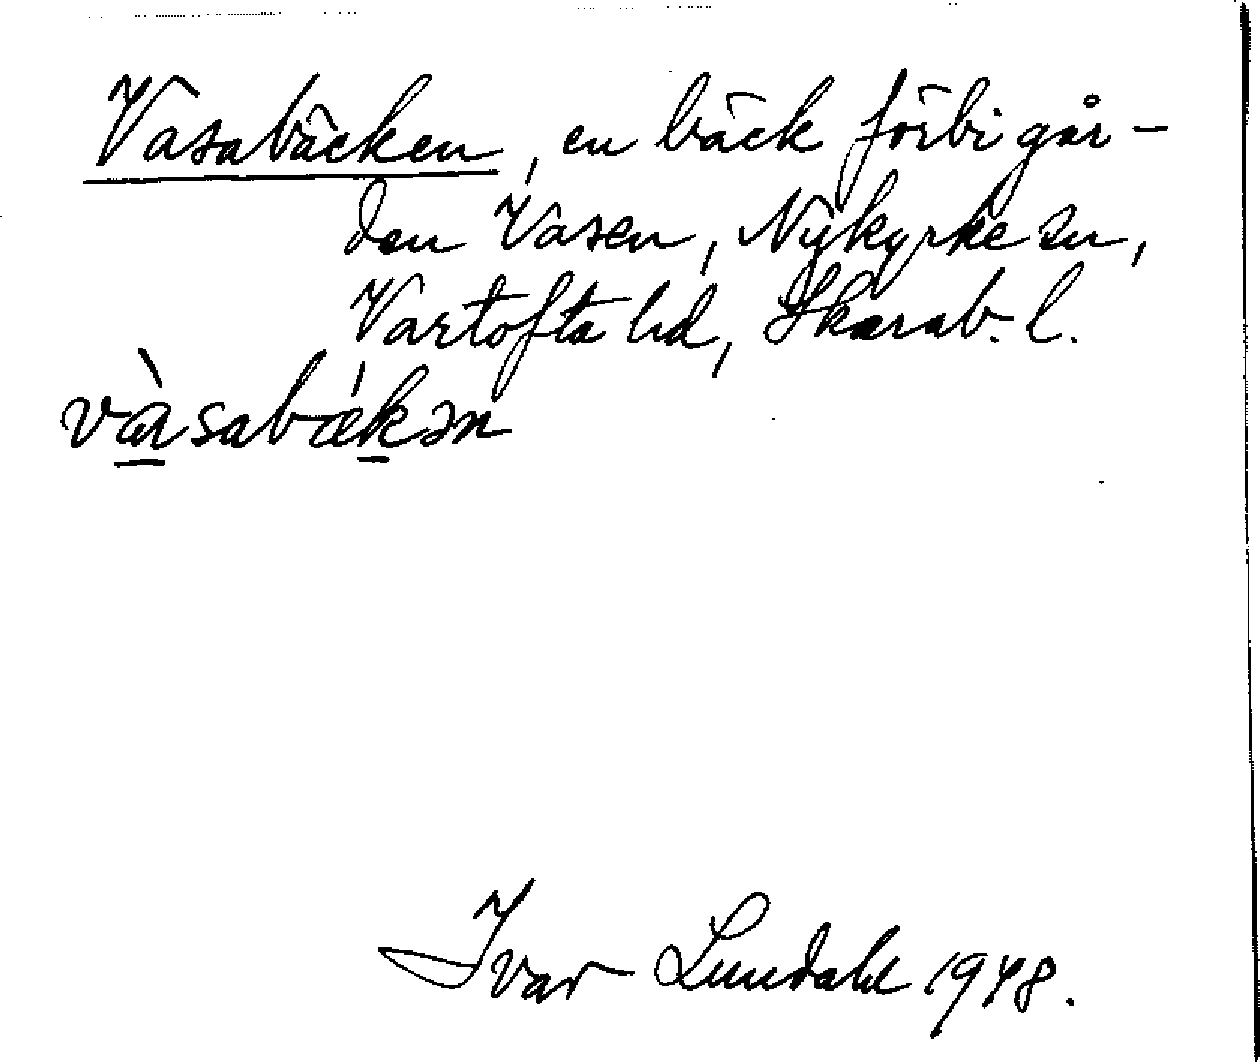 Vasabäcken, en bäck förbi går-
den Vasen, Nykyrke sn,
Vartofta hd, Skarab. l.
và̱sabǽḵən
Ivar Lundahl 1948.